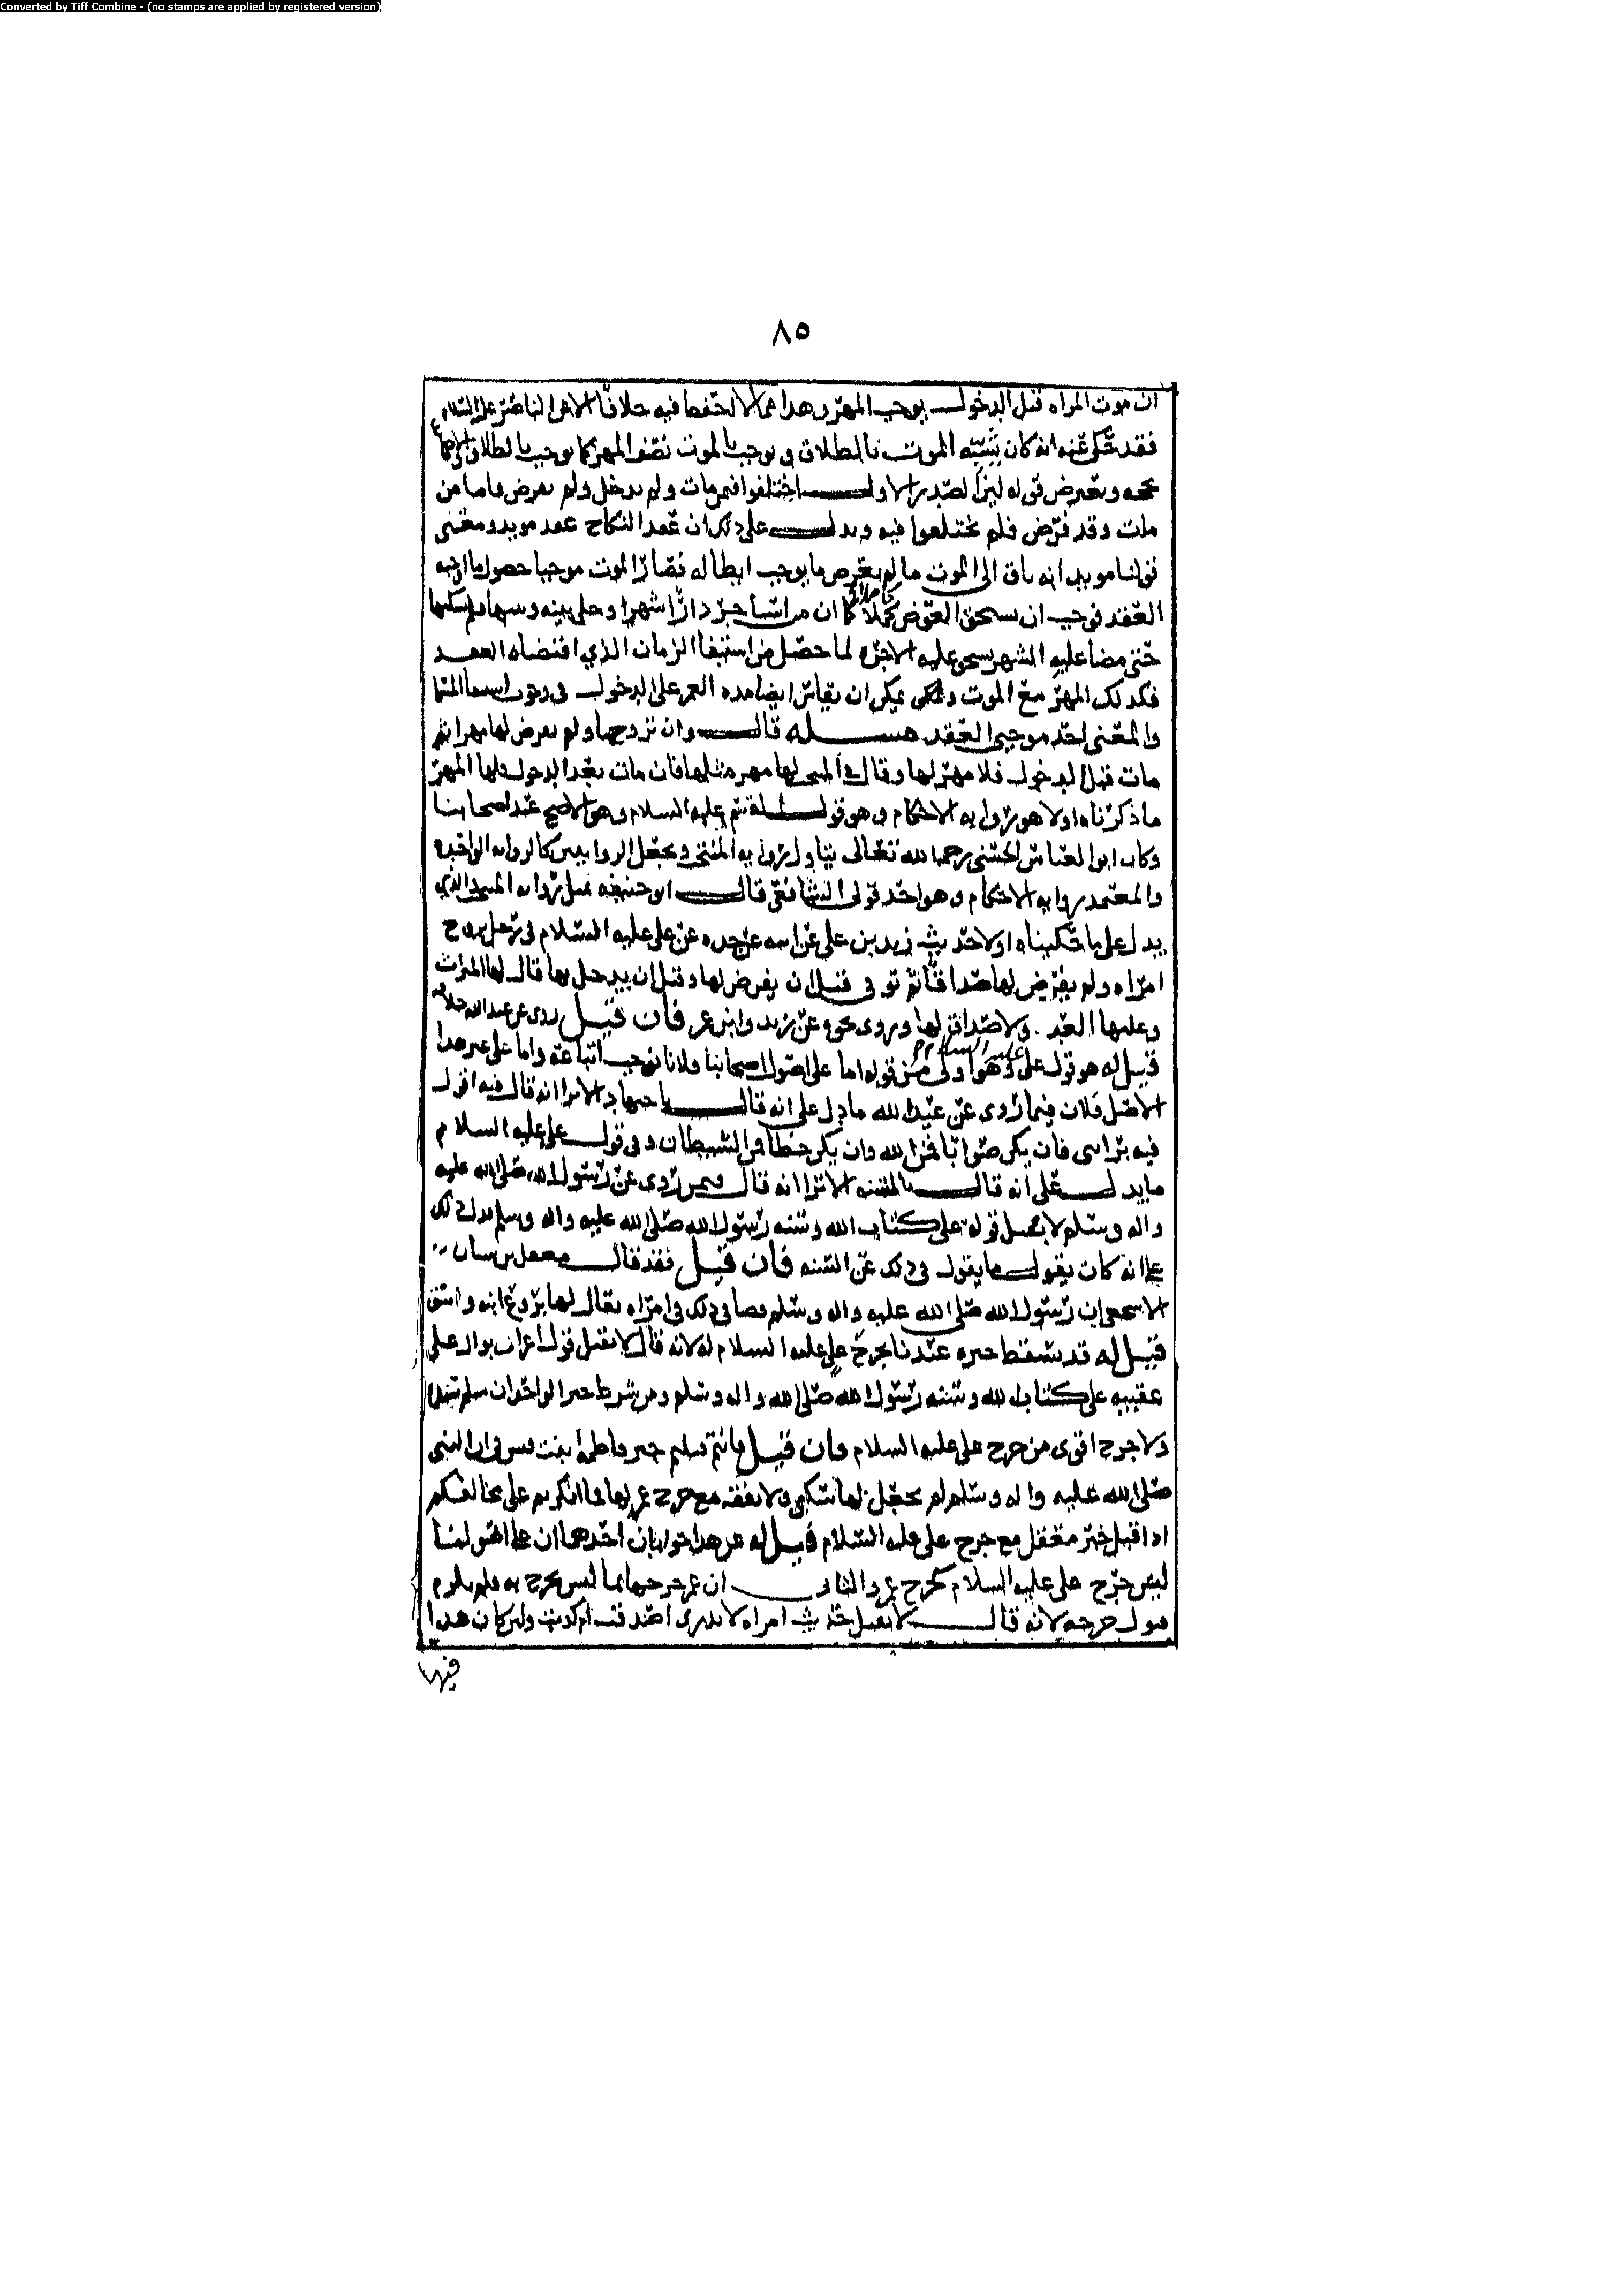 Converted by Tiff Combine - (no stamps are applied by registered version)
٨٥
ان موت المراه قبل الدخول يوجب المهر وهدا مما لا احفظ فيه خلافا الا عن الناصر عليه السلام
فقد حكى عنه انه كان يشبه الموت بالطلاق في يوجب بالموت نصف المهر كما يوجب بالطلاق
ويعترض قوله الصدر الاول اختلفوا فيمن مات ولم يدخل ولم يفرض فاما من
مات وقد فرض فلم يختلفوا فيه ويدل على ذلك ان عقد النكاح عقد مويد ومعنى
قولنا مويد انه باق الى الموت ما لم يعرض ما يوجب ابطاله فصار الموت موجبا حصول ما اوجبه
العقد فوجب ان يستحق العوض كملا كما ان من استاجر دارا شهرا وخلى بينه وبينها ولم يسكنها
حتى مضا عليه الشهر يستحق عليه الاجره لما حصل من استيفا الزمان الذي اقتضاه العقد
فكدلك المهر مع الموت ويمكن ان يقاس ايضا مده العمر على الدخول في وجوب
والمعنى احد موجبي العقد مسله قال وان تزوجها ولم يفرض لها مهرا ثم
مات قبل الدخول فلا مهر لها وقال في المنتخب لها مهر مثلها فان مات بعد الدخول فلها المهر
ما ذكرناه اولا هو روايه الاحكام وهو قول القسم عليه السلام وهو الاصح عند اصحابنا
وكان ابو العباس الحسني رحمه الله تعالى يتاول روايه المنتخب ويجعل الروايتين كالروايه الواحده
والمعتمد روايه الاحكام وهو احد قولي الشافعي قال ابو حنيفه مثل روايه المنتخب والذي
يدل على ما حكيناه اولا حديث زيد بن علي عن ابيه عن جده عن علي عليه السلام في رجل تزوج
امراه ولم يفرض لها صداقا ثم توفي قبل ان يفرض لها وقبل ان يدخل بها قال لها الميراث
وعليها العده ولا صداق لها وروي نحوه عن زيد وابن عمر فان قيل روي عن عبد الله خلافه
قيل له هو قول علي عليه السلام وهو اولى من قوله اما على اصول اصحابنا فلانا نوجب اتباعه واما على غير هدا
الاصل فلان فيما روي عن عبد الله ما دل على انه قال باجتهاد الا ترا انه قال فيه اقول
فيه براي فان يكن صوابا فمن الله وان يكن خطا فمن الشيطان وفي قول علي عليه السلام
ما يدل على انه قال بالسنه الا ترا انه قال روي عن رسول الله صلى الله عليه
واله وسلم لا يقبل قوله على كتاب الله وسنه رسول الله صلى الله عليه واله وسلم فدل ذلك
على انه كان يقول ما يقول في ذلك عن السنه فان قيل فقد قال معقل بن سنان
الاشجعي ان رسول الله صلى الله عليه واله وسلم قضا في ذلك في امراه يقال لها بروع ابنه واشق
قيل له قد سقط خبره عندنا بجرح علي عليه السلام له لانه قال لا نقبل قول اعرابي بوال على
عقبيه على كتاب الله وسنه رسول الله صلى الله واله وسلم ومن شرط خبر الواحد ان يسلم
ولا جرح اقوى من جرح علي عليه السلام فان قيل فانتم قبلتم خبر فاطمه بنت قيس في ان النبي
صلى الله عليه واله وسلم لم يجعل لها سكنى ولا نفقه مع جرح عمر لها فما انكرتم على مخالفكم
ادا قبل خبر معقل مع جرح علي عليه السلام قيل له عن هدا جوابان احدهما ان على اصولنا
ليس جرح علي عليه السلام كجرح عمر والثاني ان عمر جرحها بما ليس بجرح به فلم يلزم
قبول جرحه لانه قال لا نقبل حديث امراه لا ندري اصدقت ام كدبت وليس كان هدا
فيها